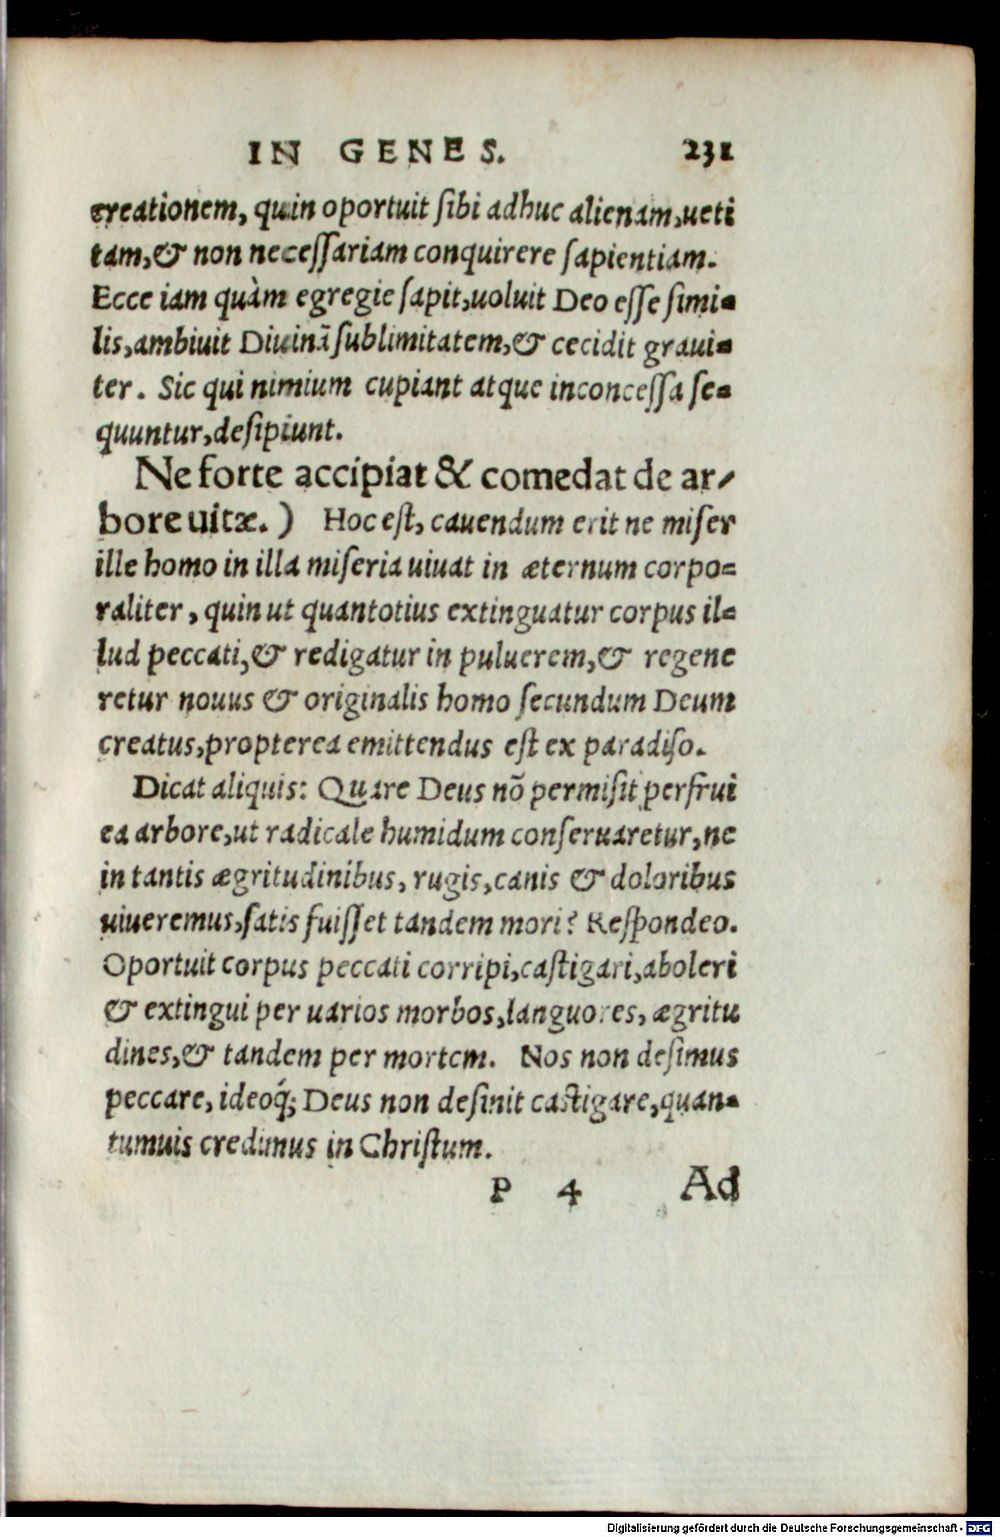 IN GENES. 231
creationem, quin oportuit sibi adhuc alienam, ueti
tam, & non necessariam conquirere sapientiam.
Ecce iam quàm egregie sapit, uoluit Deo esse simi-
lis, ambiuit Diuinā sublimitatem, & cecidit graui-
ter. Sic qui nimium cupiant atque inconcessa se-
quuntur, desipiunt.
Ne forte accipiat & comedat de ar-
bore uitæ.) Hoc est, cauendum erit ne miser
ille homo in illa miseria uiuat in æternum corpo-
raliter, quin ut quantotius extinguatur corpus il-
lud peccati, & redigatur in puluerem, & regene
retur nouus & originalis homo secundum Deum
creatus, propterea emittendus est ex paradiso.
Dicat aliquis: Quare Deus nō permisit perfrui
ea arbore, ut radicale humidum conseruaretur, ne
in tantis ægritudinibus, rugis, canis & doloribus
uiueremus, satis fuisset tandem mori? Respondeo.
Oportuit corpus peccati corripi, castigari, aboleri
& extingui per uarios morbos, languores, ægritu
dines, & tandem per mortem. Nos non desimus
peccare, ideoq́; Deus non desinit castigare, quan-
tumuis credimus in Christum.
P 4 Ad
Digitalisierung gefördert durch die Deutsche Forschungsgemeinschaft - DFG